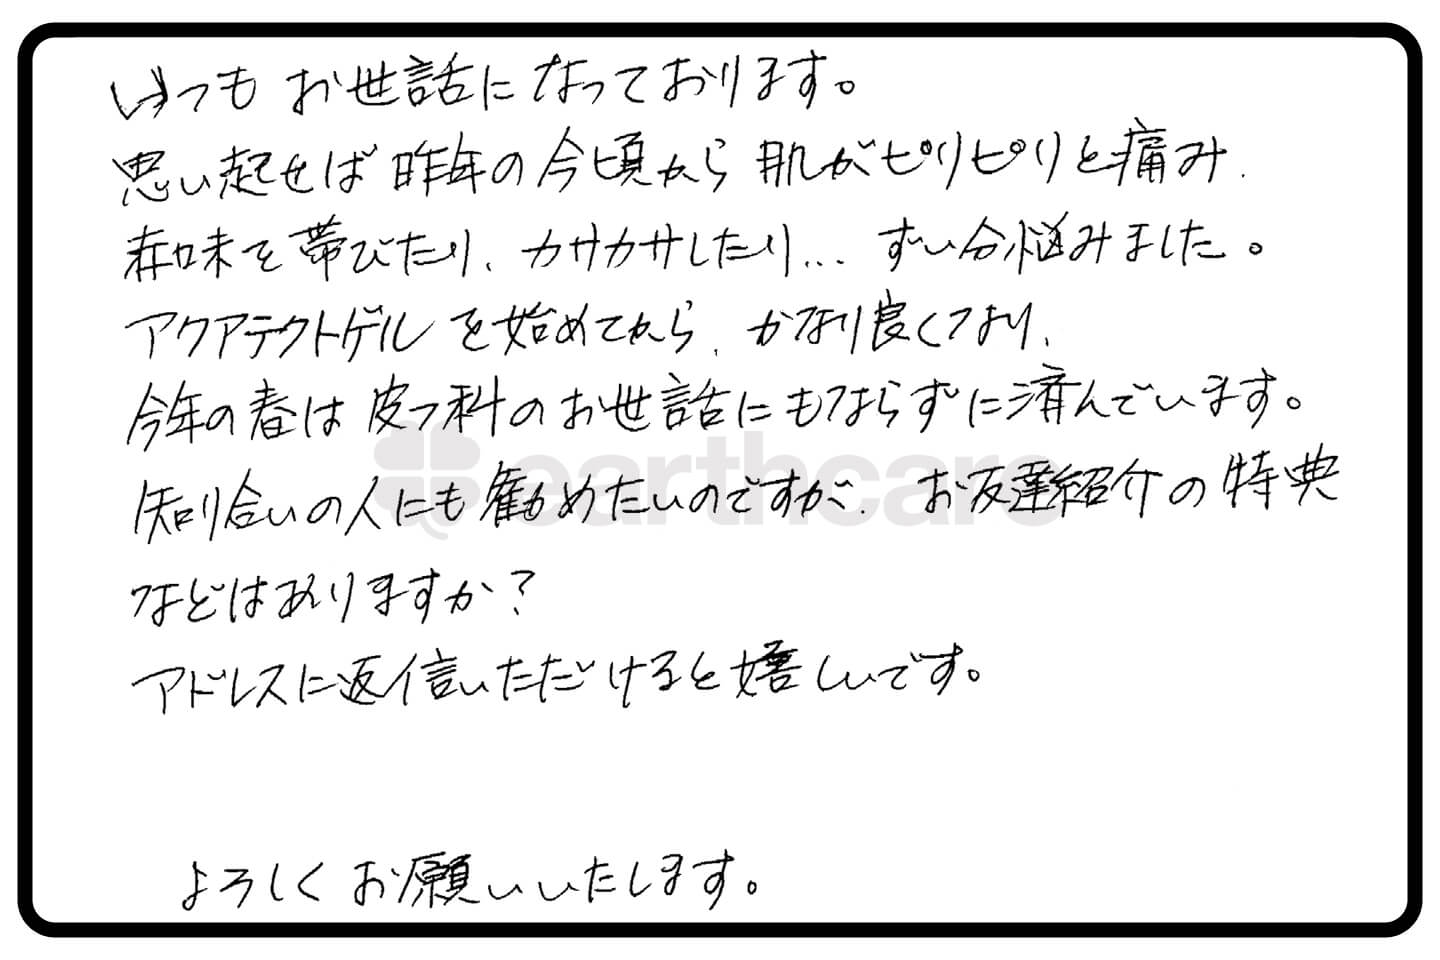 いつもお世話になっております。
思い起せば昨年の今頃から肌がピリピリと痛み、
赤味を帯びたり、カサカサしたり... ずい分悩みました。
アクアテクトゲルを始めてから、かなり良くなり、
今年の春は皮フ科のお世話にもならずに済んでいます。
earthcare
知り合いの人にも勧めたいのですが、お友達紹介の特典
などはありますか?
アドレスに返信いただけると嬉しいです。
よろしくお願いいたします。